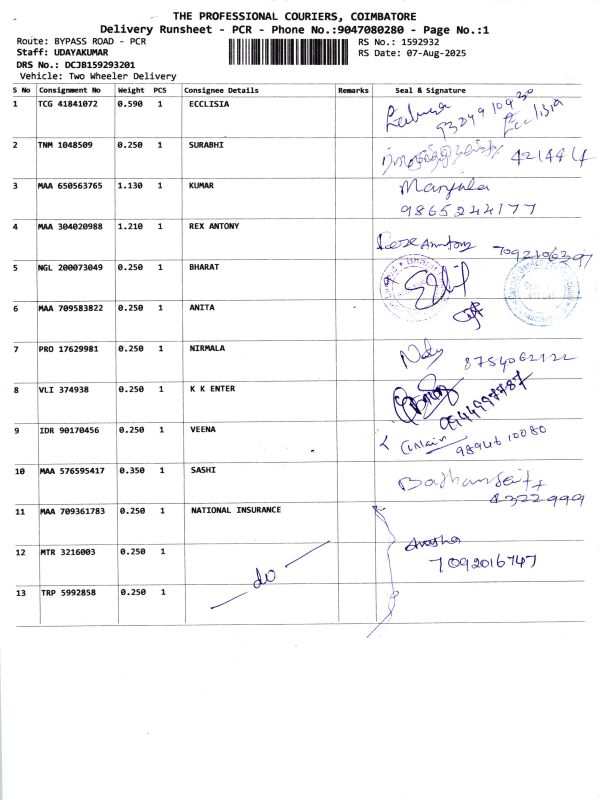 THE PROFESSIONAL COURIERS, COIMBATORE
Delivery Runsheet - PCR - Phone No.:9047080280 - Page No.:1
Route: BYPASS ROAD - PCR RS No.: 1592932
Staff: UDAYAKUMAR RS Date: 07-Aug-2025
DRS No.: DCJB159293201
Vehicle: Two Wheeler Delivery
S No Consignment No Weight PCS Consignee Details Remarks Seal & Signature
1 TCG 41841072 0.590 1 ECCLISIA
Ecclisia
2 TNM 1048509 0.250 1 SURABHI 421444
3 MAA 650563765 1.130 1 KUMAR Manjula
9865244177
4 MAA 304020988 1.210 1 REX ANTONY
7092106397
5 NGL 200073049 0.250 1 BHARAT
6 MAA 709583822 0.250 1 ANITA
7 PRO 17629981 0.250 1 NIRMALA 8754062122
8 VLI 374938 0.250 1 K K ENTER
9944997787
9 IDR 90170456 0.250 1 VEENA
9894610080
10 MAA 576595417 0.350 1 SASHI
4322999
11 MAA 709361783 0.250 1 NATIONAL INSURANCE
12 MTR 3216003 0.250 1 Anusha
7092016747
do
13 TRP 5992858 0.250 1